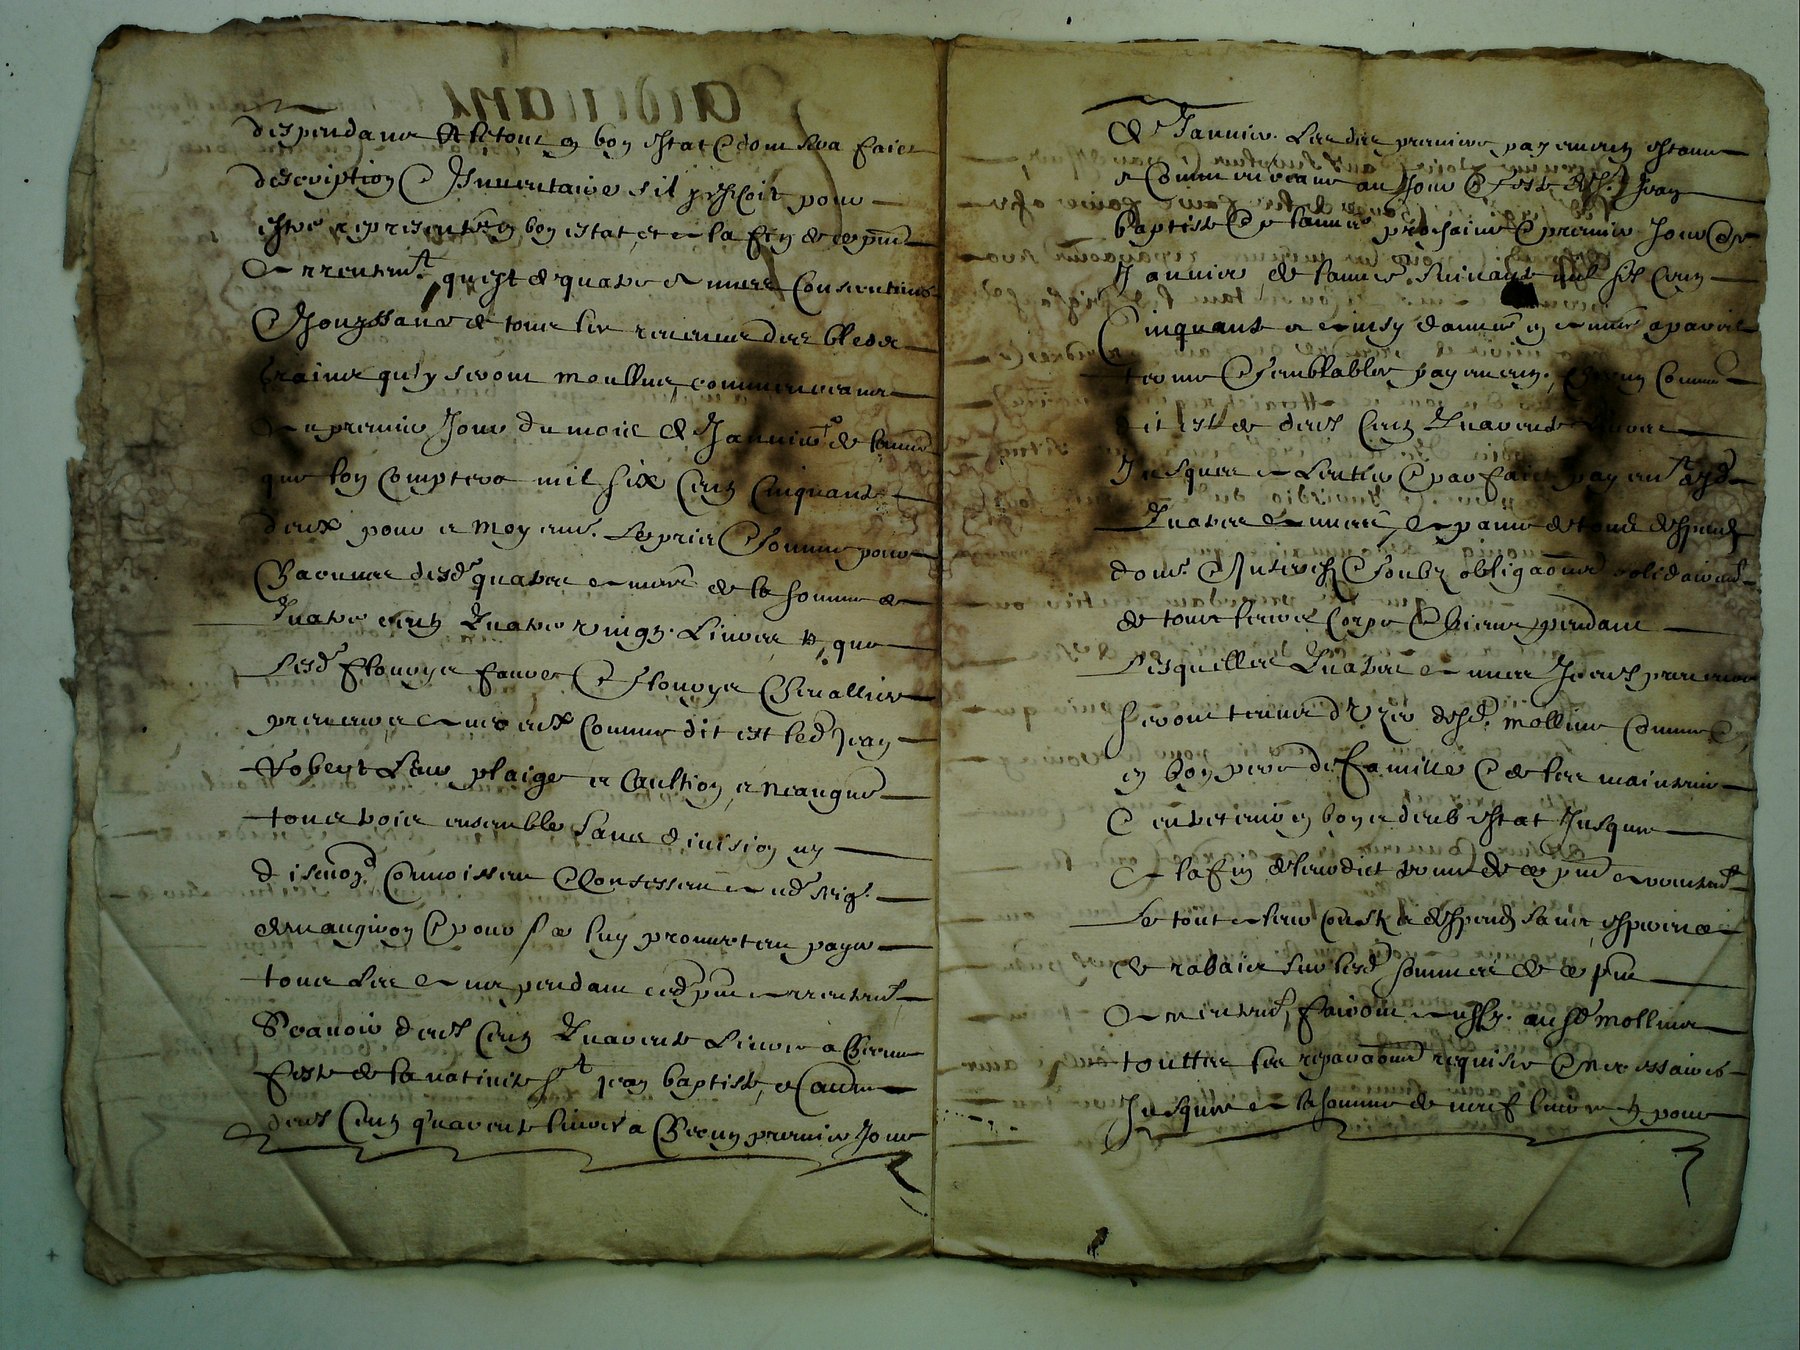 despendance Et le tout en bon estat Et dont sera faict
description Et Inventaire sil y eschoit pour
estre representé en bon estat et a la fin de ce pnt
Arrentemt quest de quatre annees Consecutives
Et Jouyssance de tous les revenus des bleds et
graines quy seront moullus commenceant
Au premier Jour du mois de Janvier de lannee
que lon comptera mil six Cens Cinquante
deux pour et moyenant Le pris Et somme pour
Chacunes desd quatre annees de la somme de
Quatre cens Quatre vingz Livres tz que
Lesd flouryes faure Et flourye Chevallier
preneurs et avec eux Comme dit est led Jean
Robert Leur plaige et Caultion et Neangmoins
tous trois ensemble sans division ny
discution Cognoissent Et Confessent aud Seigr
de maugiron Et pour ce luy promettent payer
tous Les ans pendant ced pnt arrentemt
Scavoir deux Cens Quarente Livres a Chacune
feste de la nativite St Jean baptiste, et aultres
deux Cens quarente livres a Chacun premier Jour
de Janvier. Les deux premiers payemens estant
et Commenceant au Jour Et feste de St Jean
baptiste De lannee prochaine Et premier Jour de
Janvier de lannee suivante mil six Cens
Cinquante et ainsy dannee en annee a pareils
terme Et semblables payemens, Chacun Comme
dit est de deux Cens Quarente Livres
Jusques a Lentier Et parfaict payemt desd
Quatre annees, a paine de tous despens
dom. Et Interestz Et soubz obligaõns solidaire
de tous leurs Corps Et biens pendant
Lesquelles Quatre annees Iceux preneurs
seront tenus d'Uzer desd. mollins Comme
un bon pere de famille Et de les maintenir
Et entretenir en bon et deub estat Jusques
A la fin de leurdict terme de ce pnt arrentemt
Le tout a leur Coust et despens sans esperance
de rabais sur lesd sommes de ce pnt
Arrentemt, fairont aussy. ausd mollins
touttes les reparaõns requises Et necessaires
Jusques a la somme de neuf livres tz pour